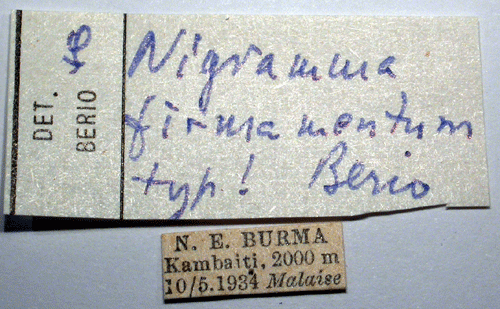 DET. BERIO
Nigramma
firmamentum
typ! Berio
N. E. BURMA
Kambaiti, 2000 m
10/5.1934 Malaise